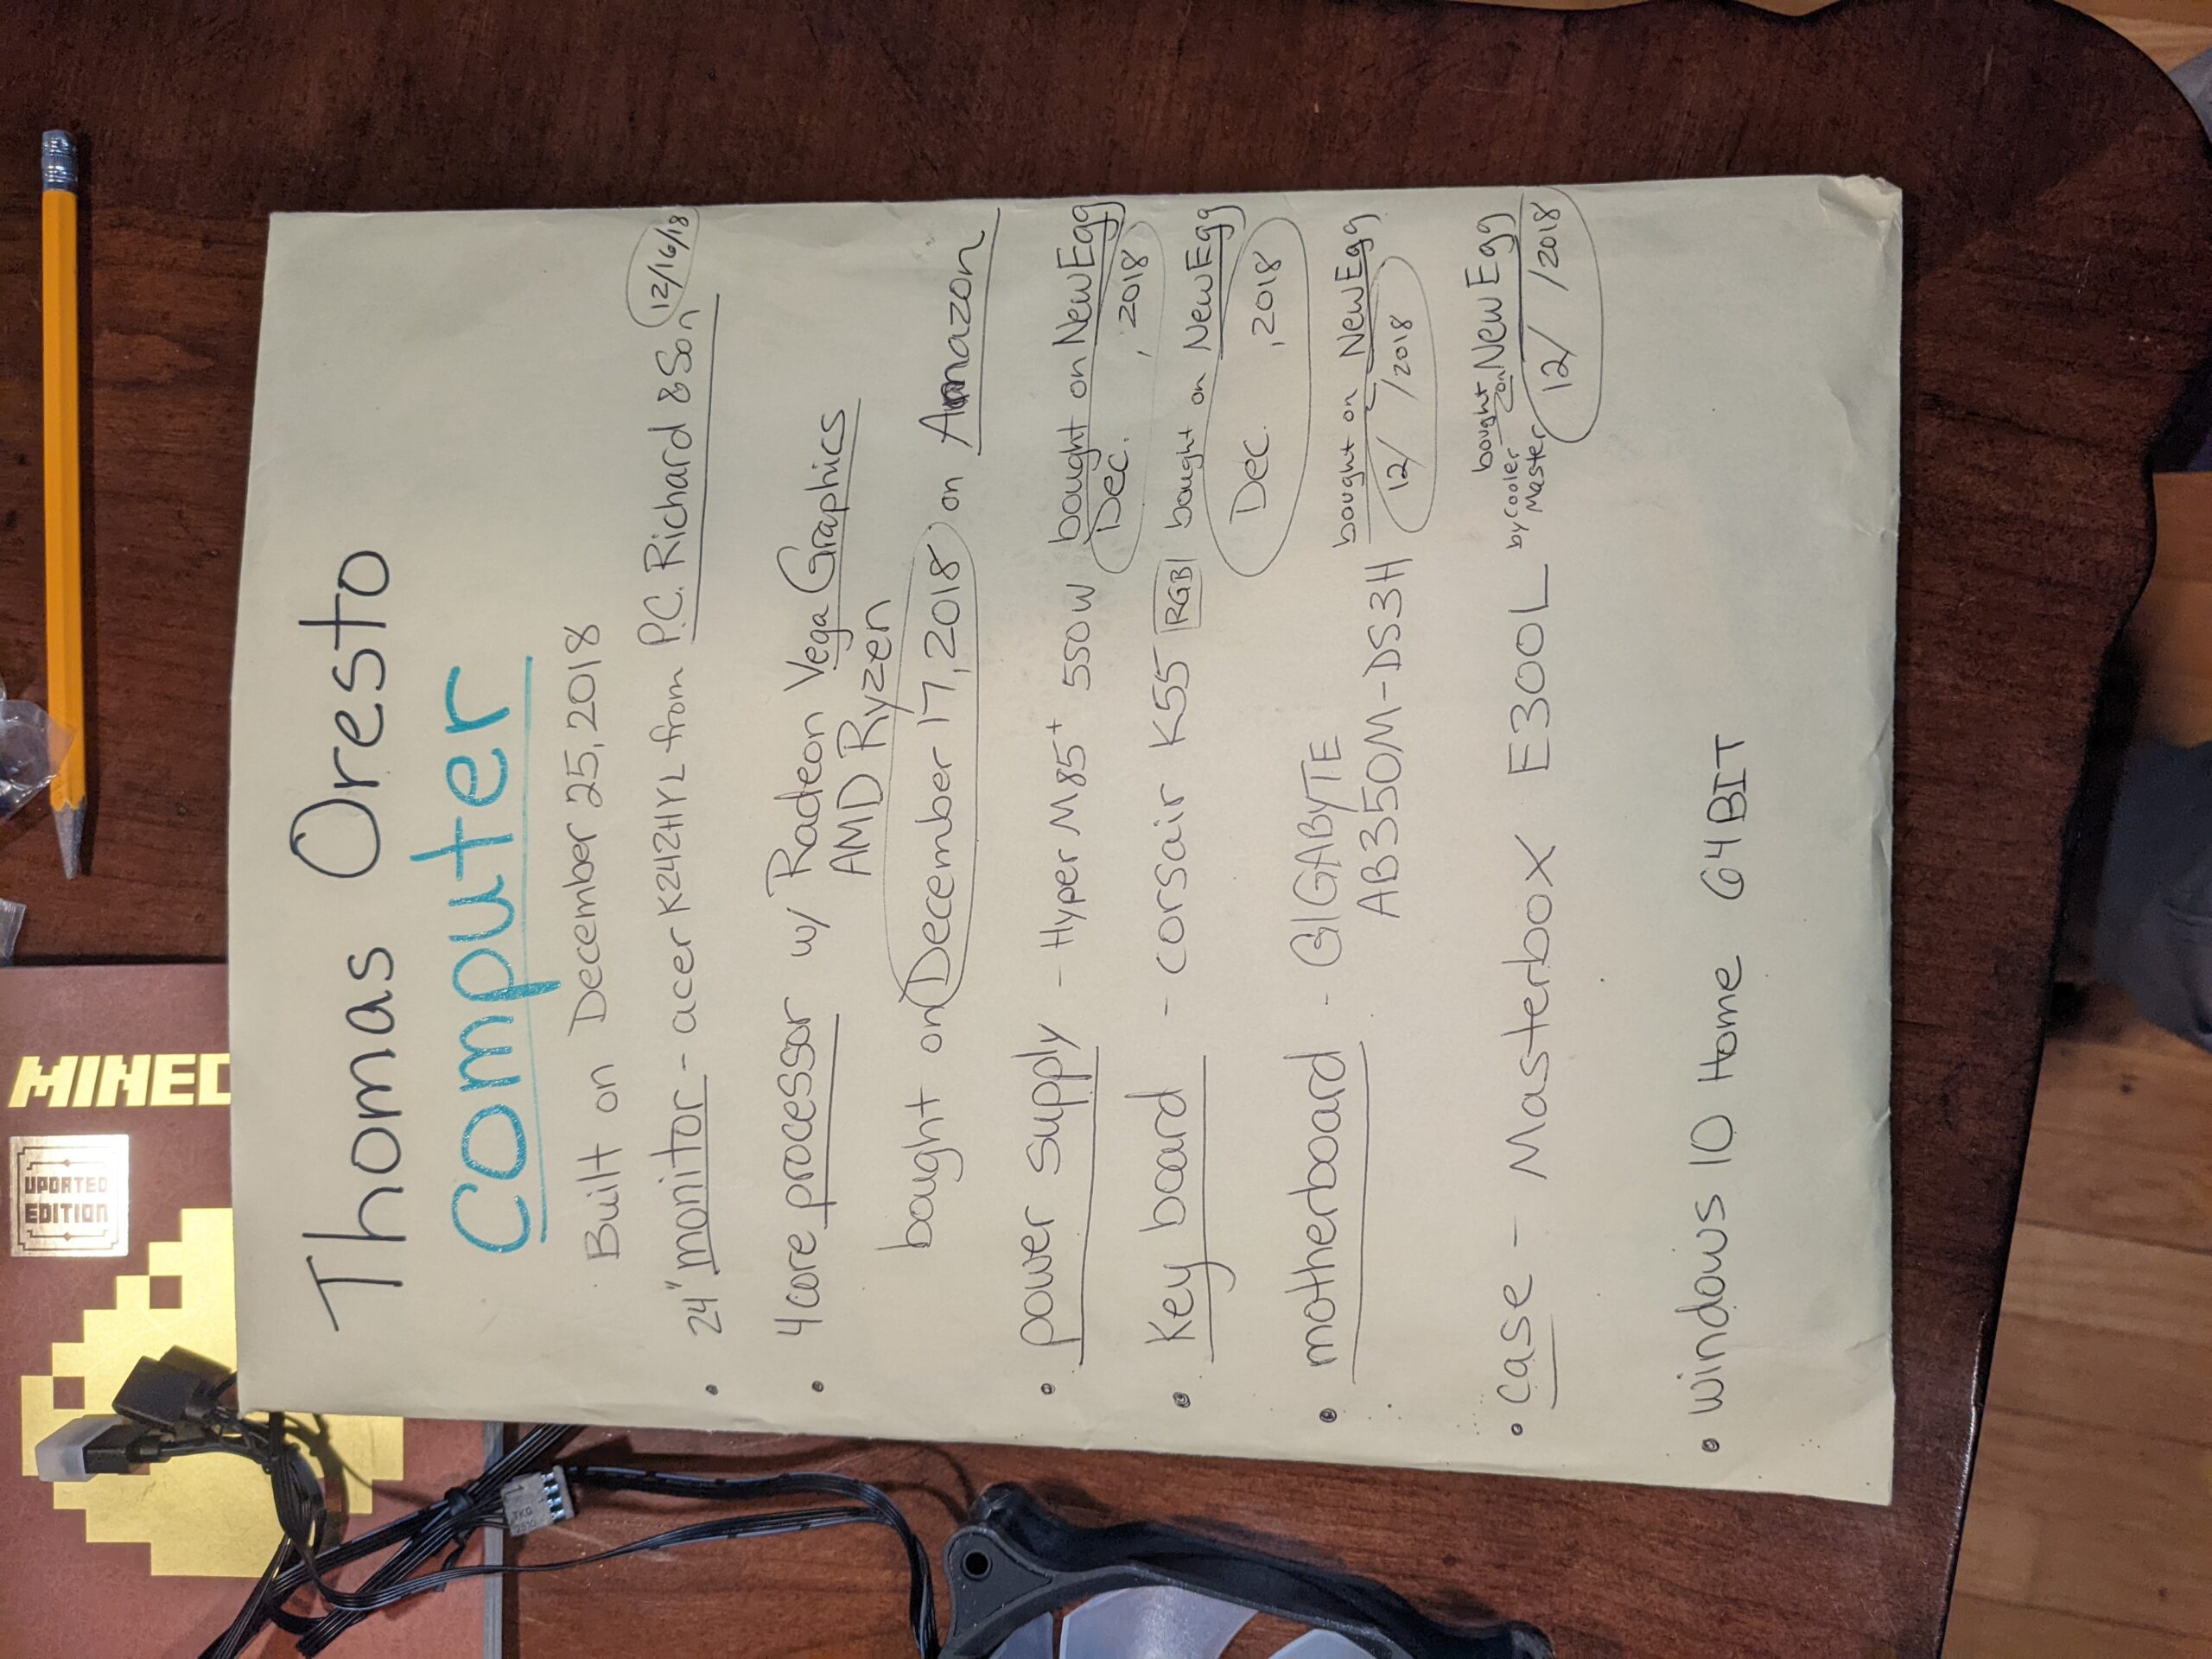 Thomas Oresto
Computer
Built on December 25, 2018
• 24" monitor - acer K242HYL from P.C. Richard & Son 12/16/18
• 4 core processor w/ Radeon Vega Graphics
AMD Ryzen
bought on December 17, 2018 on Amazon
• power supply - Hyper M85+ 550w bought on NewEgg
Dec. , 2018
• Key board - corsair K55 RGB bought on NewEgg
Dec. , 2018
• motherboard - GIGABYTE bought on NewEgg
AB350M-DS3H 12/ /2018
• case - Masterbox E300L by Cooler Master bought on NewEgg
12/ /2018
• Windows 10 Home 64BIT
MINEC
UPDATED
EDITION